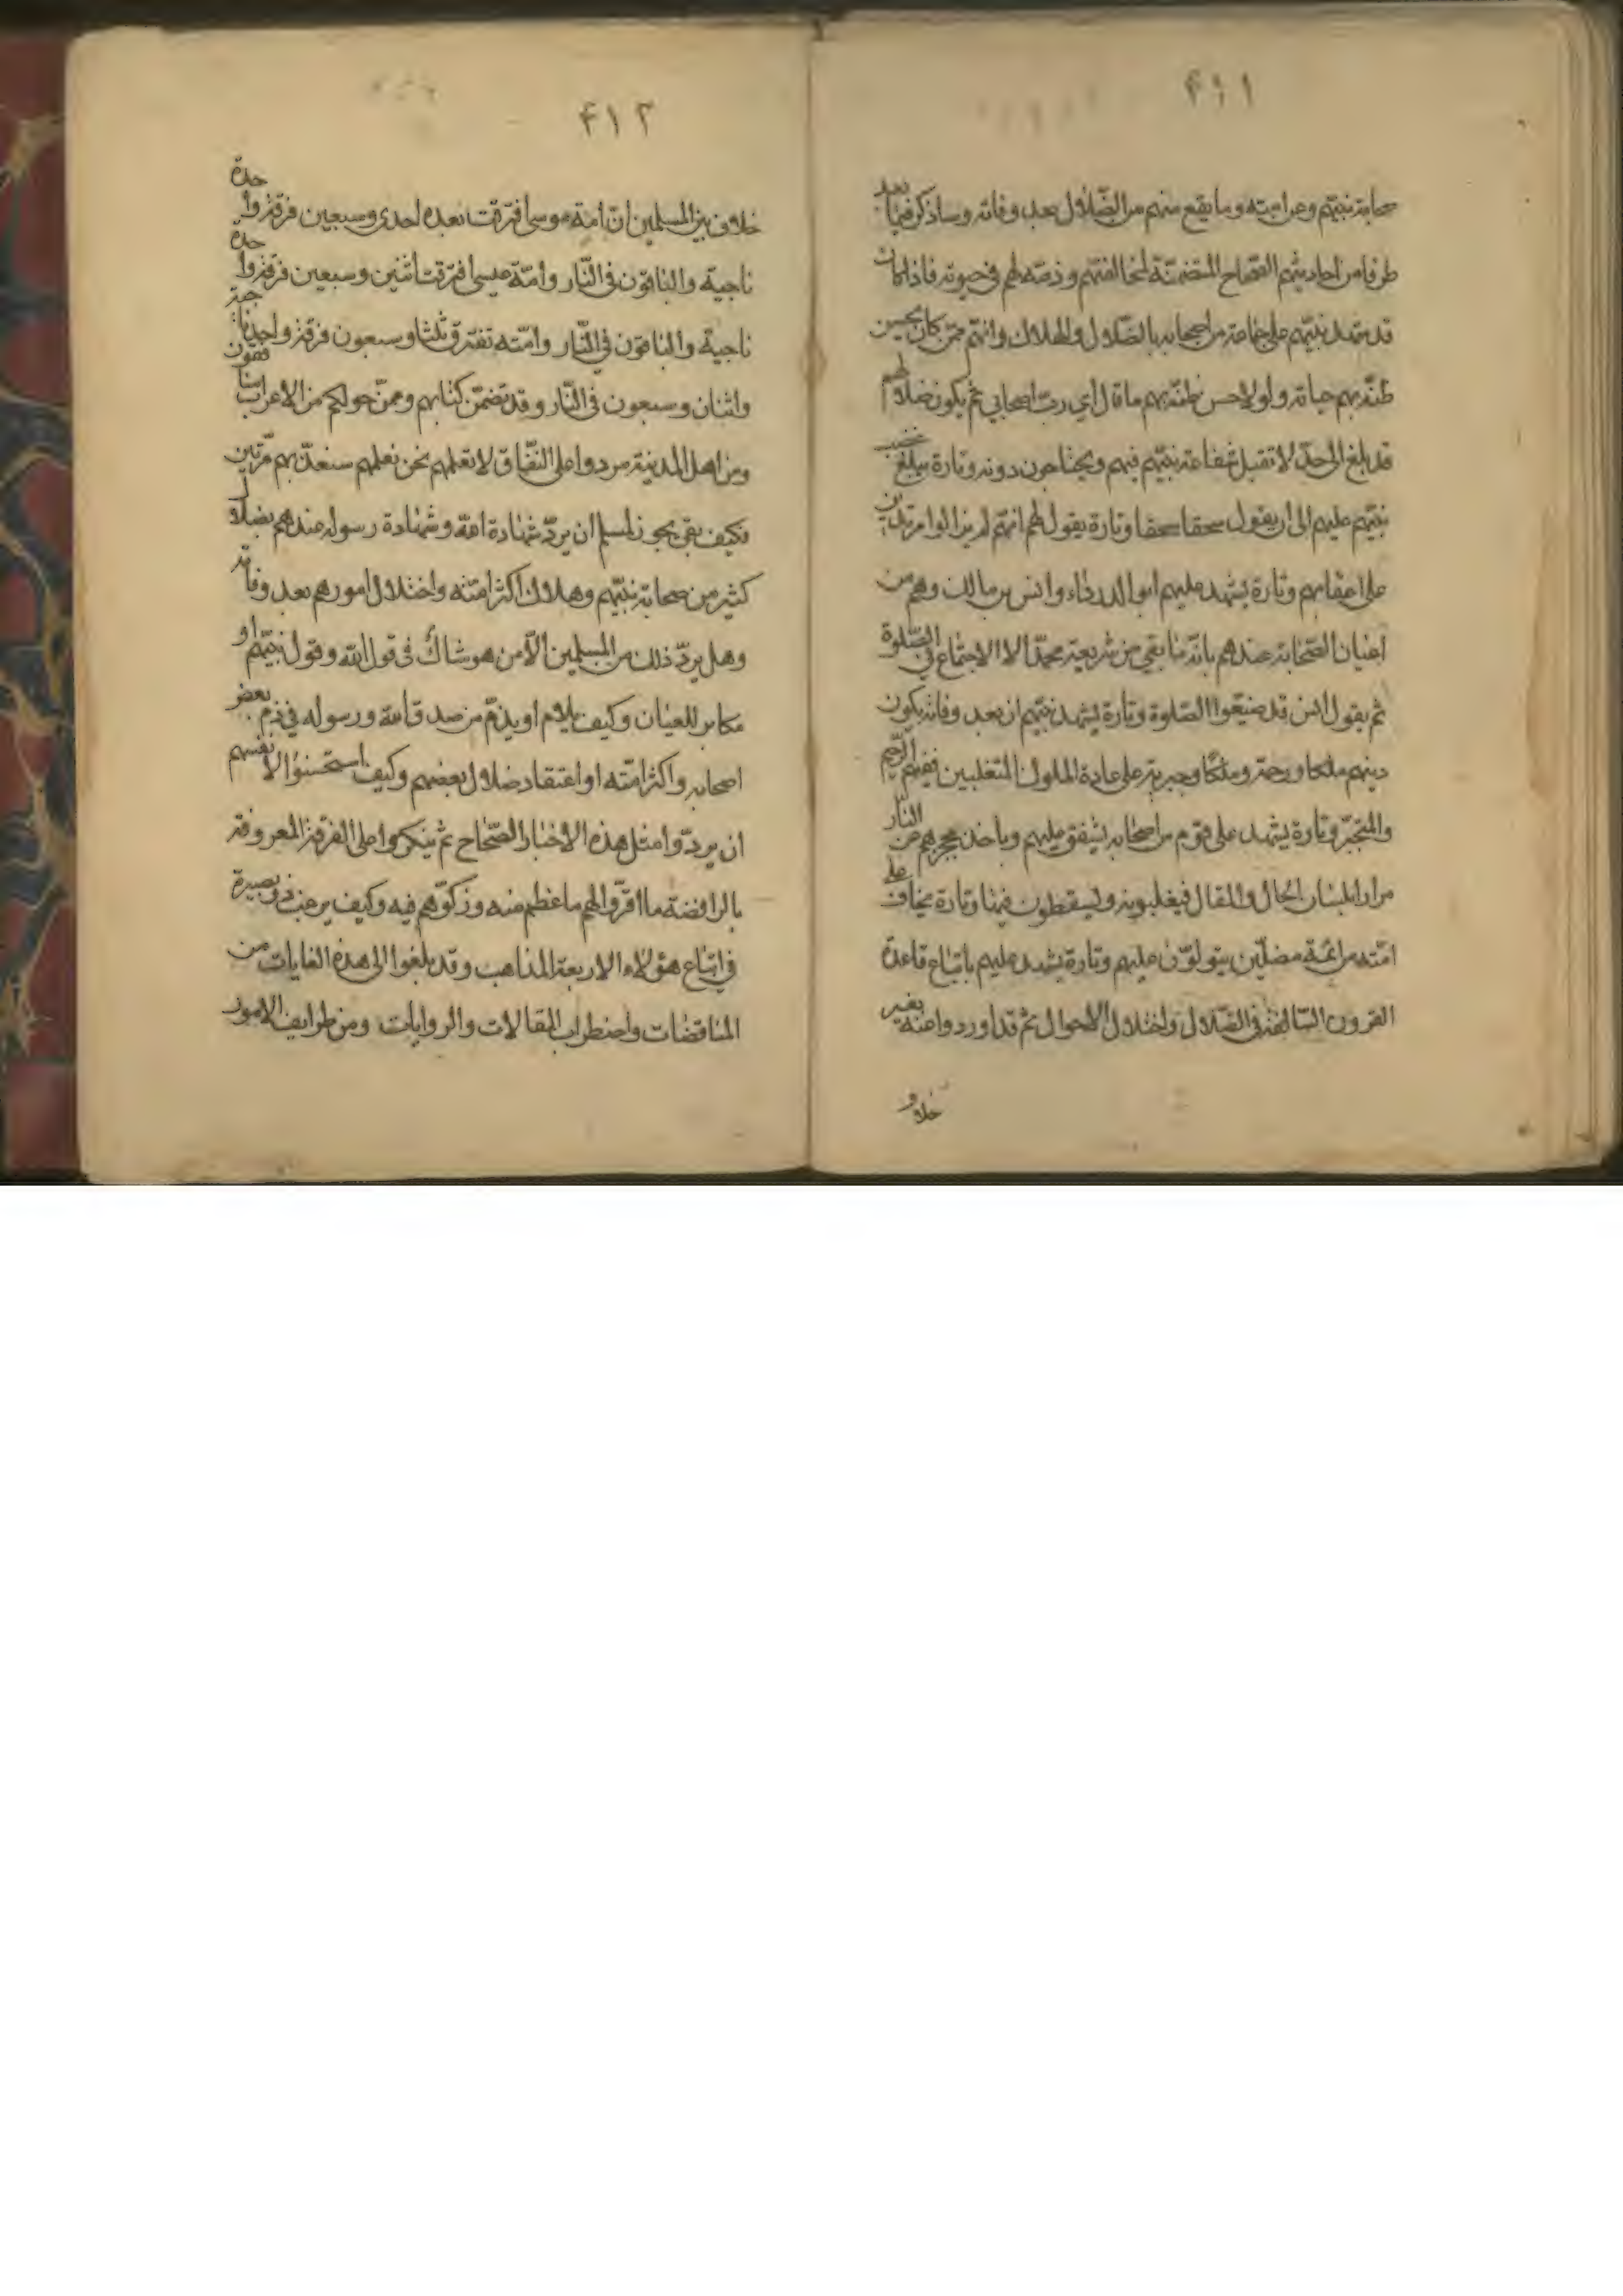 ۴۱۱
صحابة نبيّهم وعن امته وما يقع منهم من الضّلال بعد وفاته وساذكر فيما بعد
طرفا من احاديثهم الصّحاح المتضمّنة لمخالفتهم وذمّه لهم في حيوته فاذا كان
قد شهد نبيّهم على جماعة من اصحابه بالضّلال والهلاك وانّهم ممّن كان يحسن
ظنّه بهم حياته ولولا حسن ظنّه بهم ما قال اي ربّ اصحابي ثم يكون ضلالهم
قد بلغ الى حدّ لا تقبل شفاعة نبيّهم فيهم ويختلجون دونه وتارة يبلغ غضب
نبيّهم عليهم الى ان يقول سحقا سحقا وتارة يقول لهم انّهم لم يزالوا مرتدين
على اعقابهم وتارة يشهد عليهم ابو الدرداء وانس بن مالك وهم من
اعيان الصّحابة عندهم بانّه ما بقي من شريعة محمّد الا الاجتماع في الصّلوة
ثم يقول انس قد ضيّعوا الصّلوة وتارة يشهد نبيّهم ان بعد وفاته يكون
دينهم ملكا ورحمة وملكا وجبرية على عادة الملوك المتغلبين ففيهم الرّحيم
والمتجبّر وتارة يشهد على قوم من اصحابه يشفق عليهم وياخذ بحجزهم عن النّار
مرارا بلسان الحال والمقال فيغلبونه ويسقطون فيها وتارة يخاف على
امّته من ائمّة مضلّين يتولوّن عليهم وتارة يشهد عليهم باتباع قاعدة
القرون السّالفة في الضّلال واختلال الاحوال ثم قد اوردوا عنه بغير
خلاف
۴۱۲
خلاف بين المسلمين انّ امّة موسى افترقت بعده احدى وسبعين فرقة واحدة
ناجية والباقون في النّار وامّة عيسى افترقت اثنين وسبعين فرقة واحدة
ناجية والباقون في النّار وامّته تفترق ثلثا وسبعون فرقة واحدة ناجية
واثنان وسبعون في النّار وقد تضمّن كتابهم وممّن حولكم من الاعراب منافقون
ومن اهل المدينة مردوا على النّفاق لا تعلمهم نحن نعلمهم سنعذّبهم مرّتين
فكيف بقي يجوز لمسلم ان يردّ شهادة الله وشهادة رسوله عندهم بضلال
كثير من صحابة نبيّهم وهلاك اكثر امّته واختلال امورهم بعد وفاته
وهل يردّ ذلك من المسلمين الّا من هو شاكّ في قول الله وقول نبيّهم او
مكابر للعيان وكيف يلام او يذمّ من صدق الله ورسوله في ذم بعض
اصحابه واكثر امّته او اعتقاد ضلال بعضهم وكيف استحسنوا لانفسهم
ان يردّوا مثل هذه الاخبار الصّحاح ثم ينكروا على الفرقة المعروفة
بالرافضة ما اقرّوا لهم باعظم منه وزكّوهم فيه وكيف يرغب ذو بصيرة
في اتباع هؤلاء الاربعة المذاهب وقد بلغوا الى هذه الغايات من
المناقضات واضطراب المقالات والروايات ومن طرايف الامور